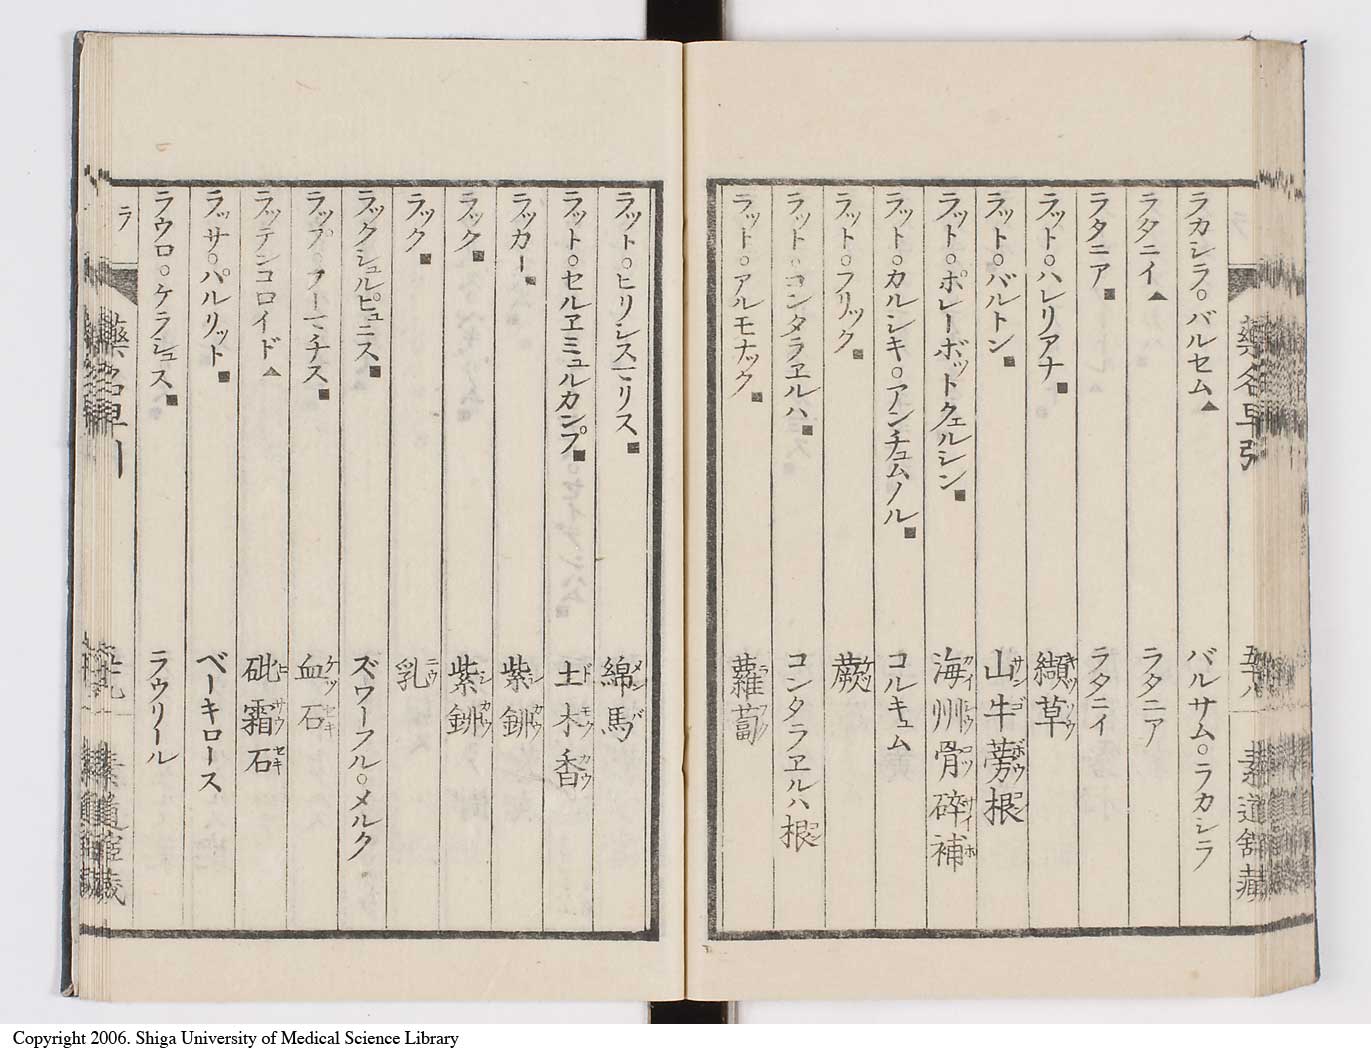 ラカシラ。バルセム▲ バルサム。ラカシラ
ラタニイ▲ ラタニア
ラタニア■ ラタニイ
ラット。ハレリアナ■ 纈草
ラット。バルトン■ 山牛蒡根
ラット。ポレーボットクェルシン■ 海州骨碎補
ラット。カルンキ。アンチュムノル■ コルキュム
ラット。フリック■ 蕨
ラット。コンタラヱルハ■ コンタラヱルハ根
ラット。アルモナック■ 蘿蔔
藥名早引 五十八 素道舘藏
ラット。ヒリシスマリス■ 綿馬
ラット。セルヱミュルカンプ■ 土木香
ラッカー■ 紫鉚
ラック■ 紫鉚
ラック■ 乳
ラックシュルピュニス■ ズワーフル。メルク
ラップ。フーマチス■ 血石
ラッテンコロイド▲ 砒霜石
ラッサ。パルリット■ ベーキロース
ラウロ。ケラシュス■ ラウリール
ラ
Copyright 2006. Shiga University of Medical Science Library